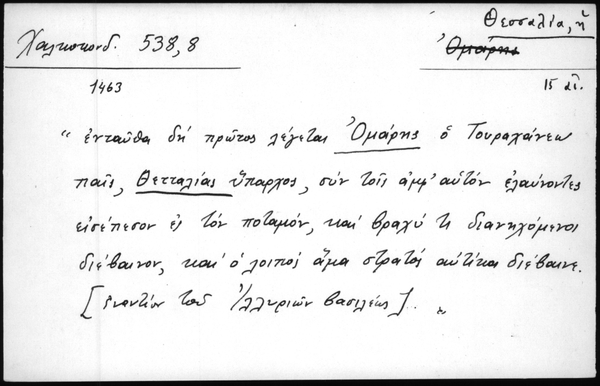 Χαλκοκονδ. 538,8
Θεσσαλία, ἡ
Ὀμάρης
1463
15 αἰ.
“ ἐνταῦθα δή πρῶτος λέγεται Ὀμάρης ὁ Τουραχάνεω
παῖς, Θετταλίας ὕπαρχος, σύν τοῖς ἀμφ' αὐτόν ἐλαύνοντες
εἰσέπεσον ἐς τόν ποταμόν, καί βραχύ τι διανηχόμενοι
διέβαινον, καί ὁ λοιπός ἅμα στρατός αὐτίκα διέβαινε.
[ἐναντίον τοῦ Ἰλλυριῶν βασιλέως]. „